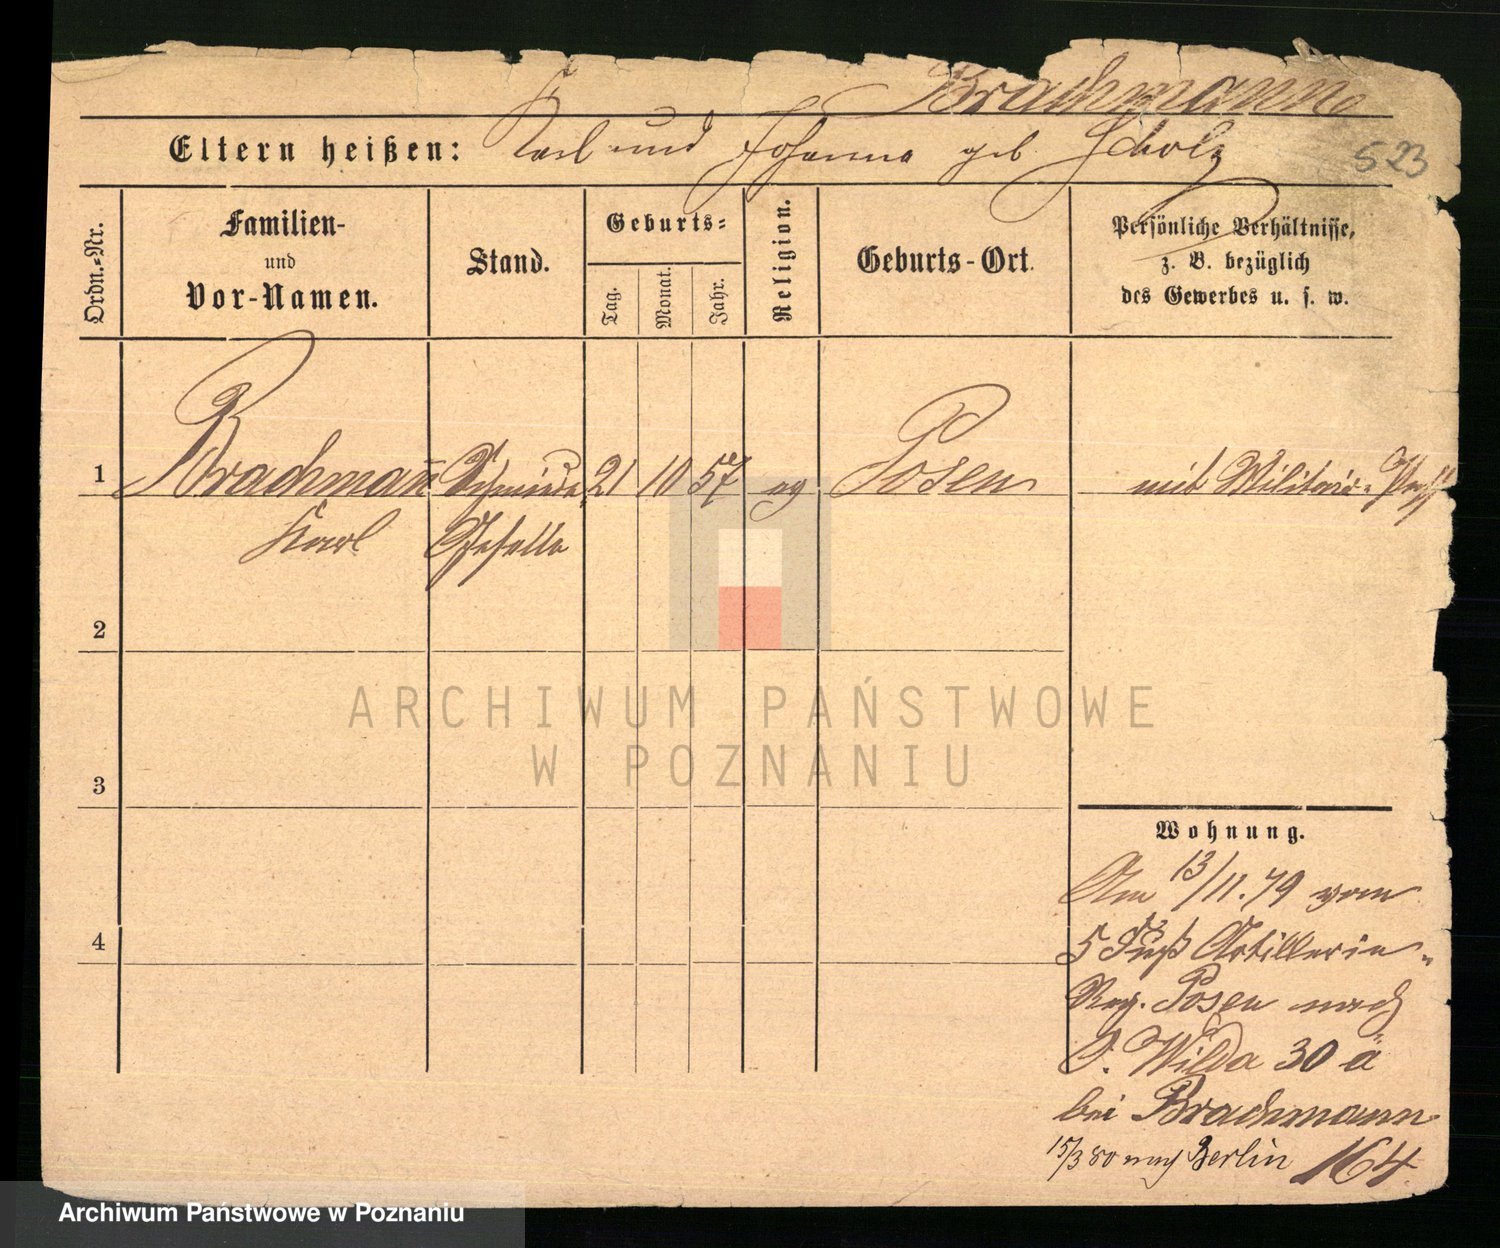 Brachmann
Eltern heißen: Karl und Johanna geb Scholz
523
Ordn.-Nr.
Familien-
und
Vor-Namen.
Stand.
Geburts-
Tag.
Monat.
Jahr.
Religion.
Geburts-Ort.
Persönliche Verhältnisse,
z. B. bezüglich
des Gewerbes u. s. w.
1 Brachmann Schmiede 21 10 57 ev Posen mit Militair-Paß
Karl Geselle
2
3
4
Wohnung.
Am 13/11.79 vom
5 Fuß Artillerie-
Reg. Posen nach
O. Wilda 30 a
bei Brachmann
15/3 80 nach Berlin 164
ARCHIWUM PAŃSTWOWE
W POZNANIU
Archiwum Państwowe w Poznaniu